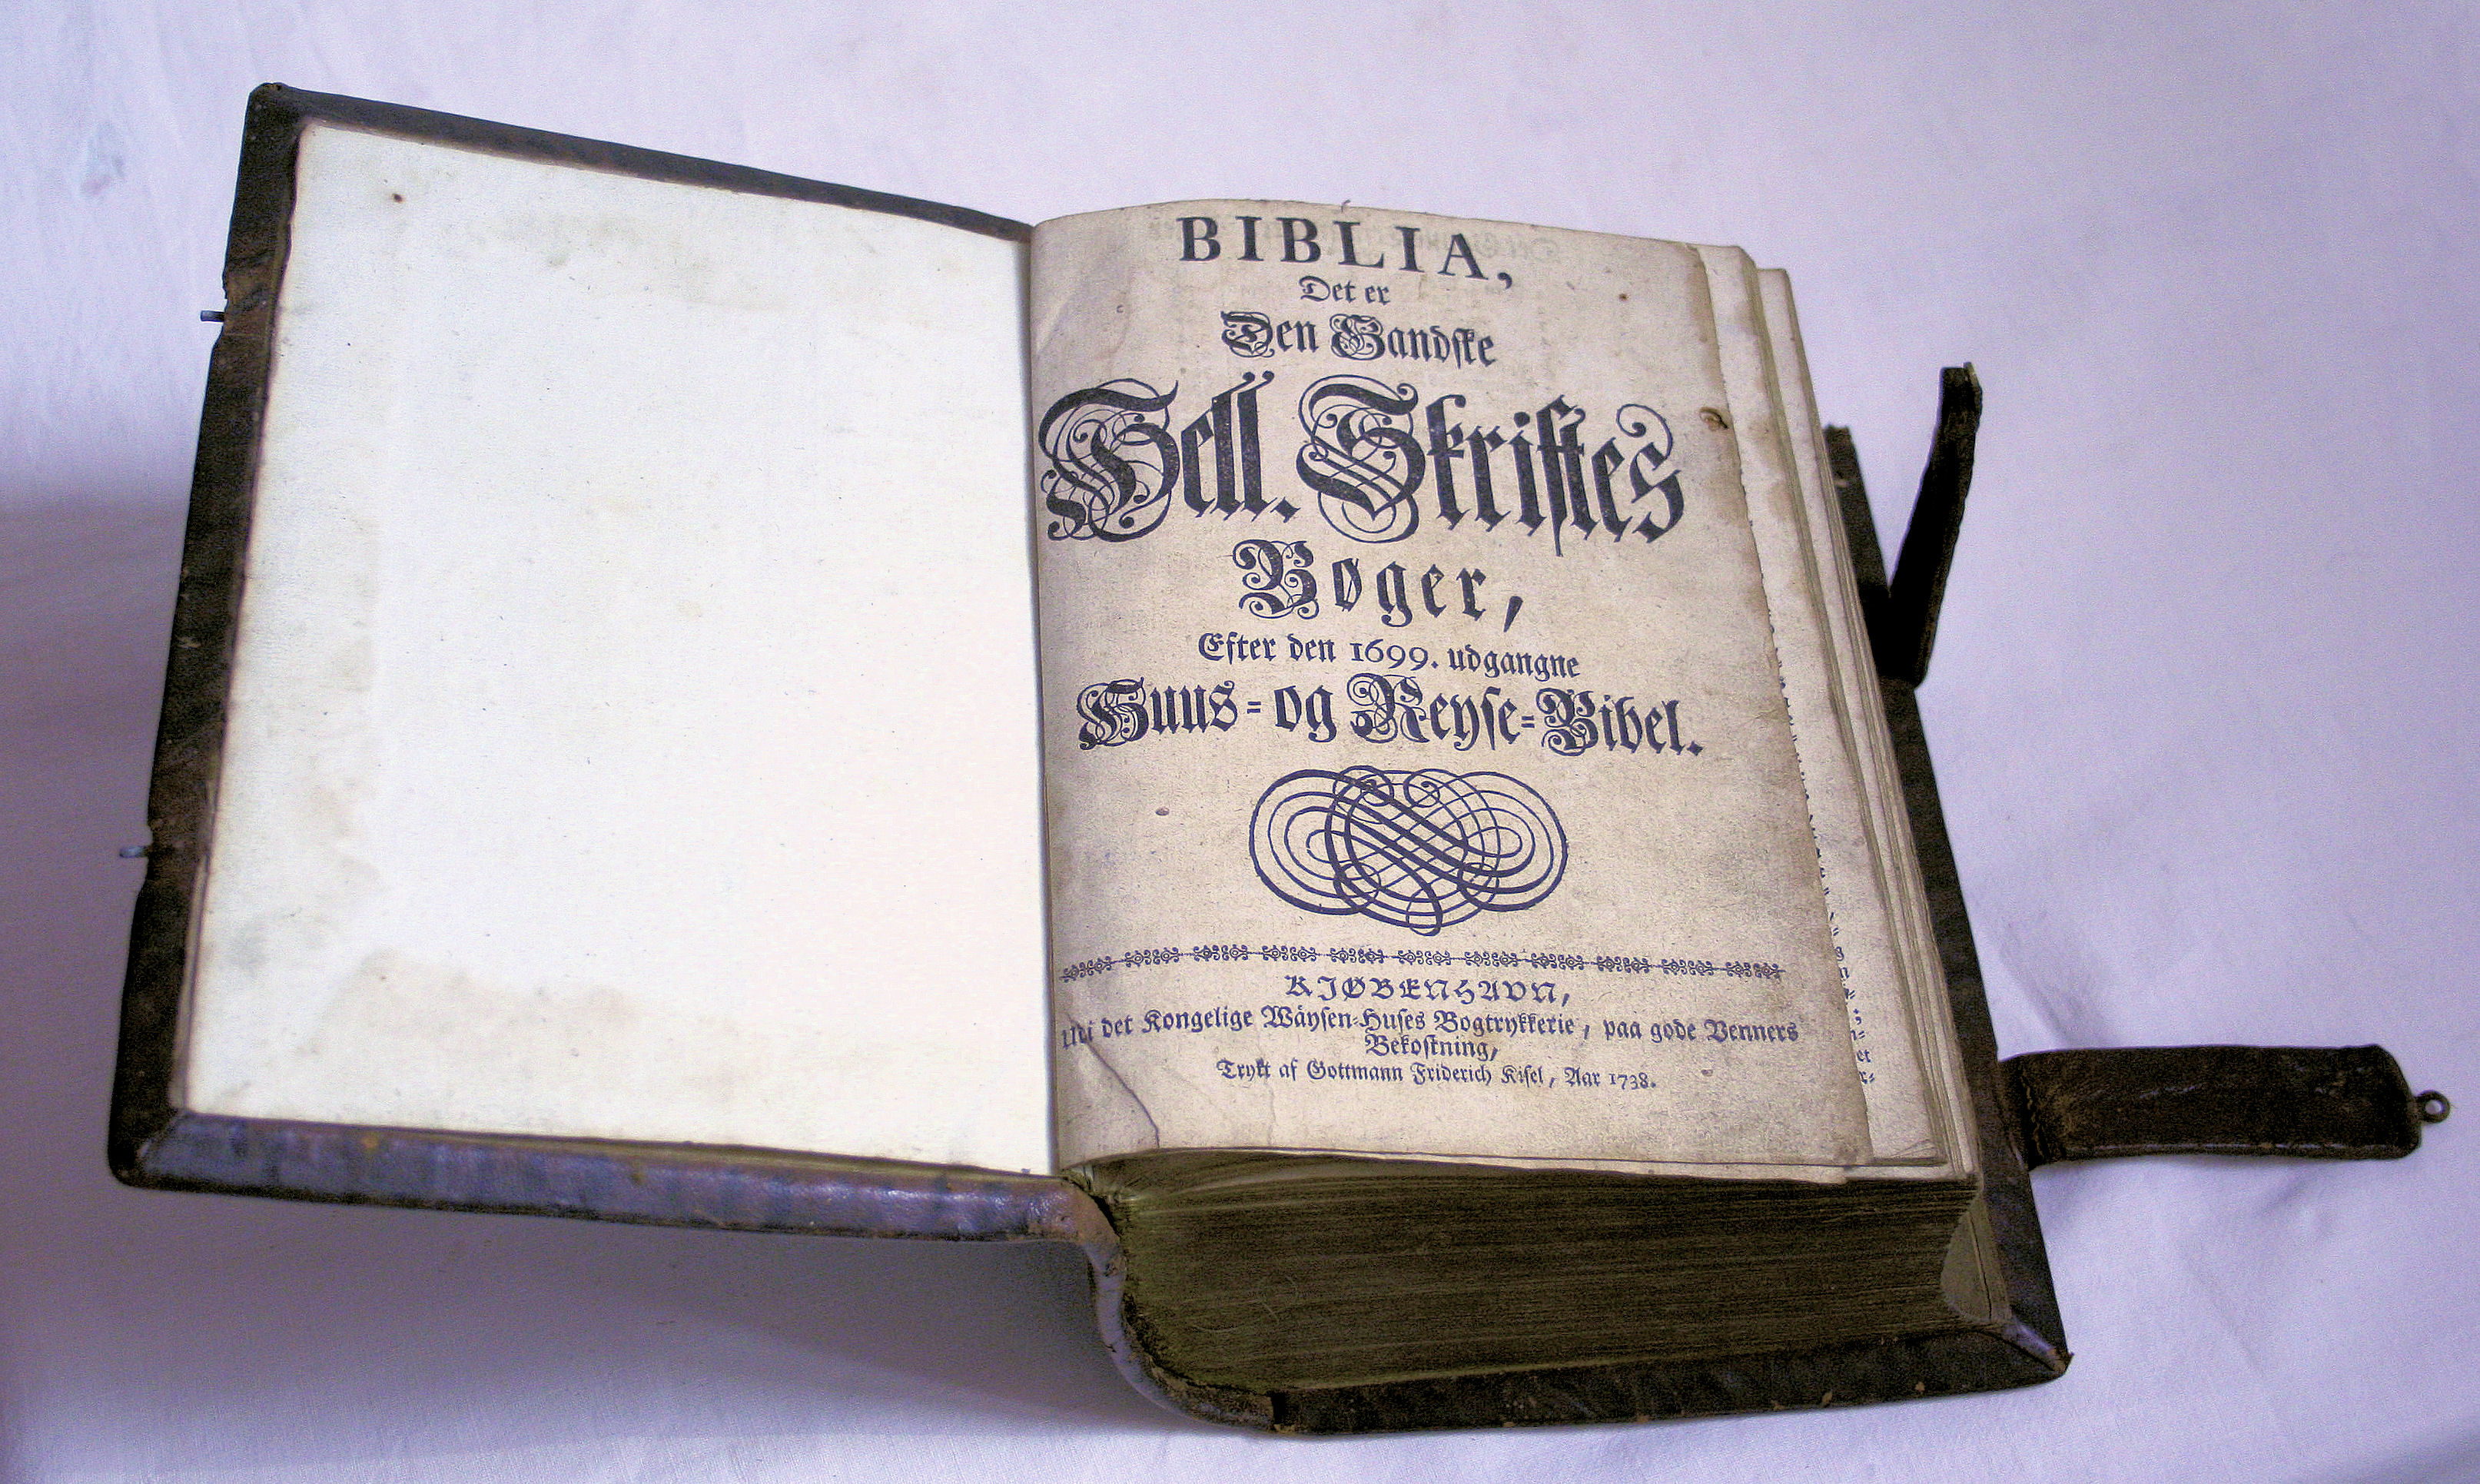 BIBLIA,
Det er
Den Gandske
Hell. Skriftes
Bøger,
Efter den 1699. udgangne
Huus- og Reyse-Bibel.
KJØBENHAVN,
Udi det Kongelige Wäysen-Huses Bogtrykkerie, paa gode Venners
Bekostning,
Trykt af Gottmann Friderich Kisel, Aar 1738.